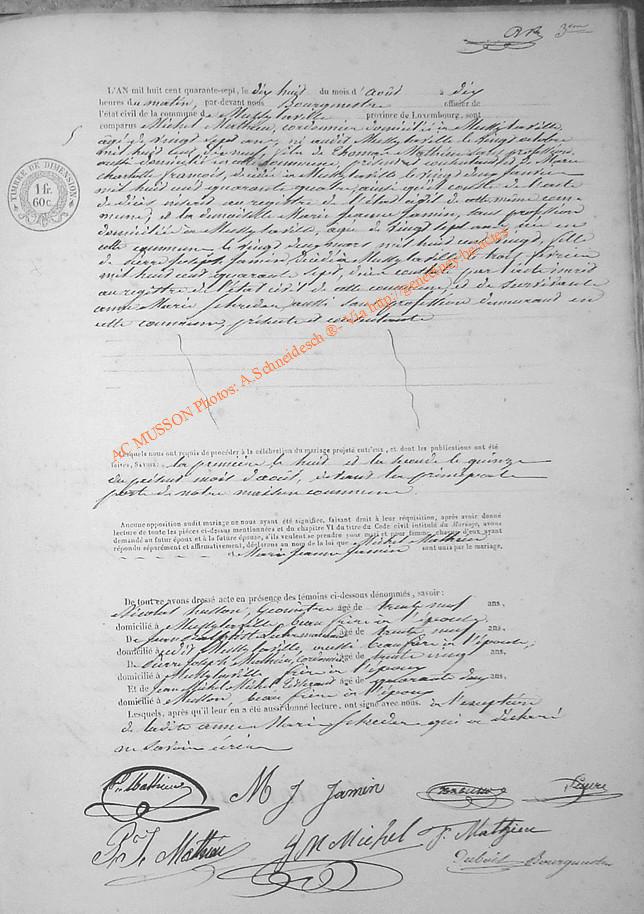 3em
L'AN mil huit cent quarante-sept, le dix huit du mois d'août à dix
heures du matin, par-devant nous Bourgmestre officier de
l'état civil de la commune de Mussy la ville province de Luxembourg, sont
comparus Michel Mathieu, cordonnier domicilié à Mussy la ville
âgé de vingt sept ans, né audit Mussy la ville le vingt
mil huit cent dix neuf, fils de Thomas Mathieu sans profession
aussi domicilié en cette commune, présent et consentant et de Marie
charlotte françois, décédée à Mussy la ville le vingt deux Janvier
mil huit cent quarante quatre, ainsi qu'il conste de l'acte
de décès inséré au registre de l'état civil de cette même com-
mune, et la demoiselle Marie Jeanne Jamin, sans profession
domiciliée à Mussy la ville, âgée de vingt sept ans née en
cette commune le vingt deux mars mil huit cent vingt, fille
de pierre Joseph Jamin, décédé à Mussy la ville le trois février
mil huit cent quarante sept, décès constaté par l'acte inséré
au registre de l'état civil de cette commune, et de survivante
anne Marie Schreder, aussi sans profession demeurant en
cette commune, présente et consentante
TIMBRE DE DIMENSION
1 fr.
60c.
AC MUSSON Photos: A.Schneidesch ®- Via http://geneanet.be-actes
Lesquels nous ont requis de procéder à la célébration du mariage projeté entr'eux, et dont les publications ont été
faites, Savoir: la première le huit et la seconde le quinze
du présent mois d'août, devant la principale
porte de notre maison commune
Aucune opposition audit mariage ne nous ayant été signifiée, faisant droit à leur réquisition, après avoir donné
lecture de toutes les pièces ci-dessus mentionnées et du chapitre VI du titre du Code civil intitulé du Mariage, avons
demandé au futur époux et à la future épouse, s'ils veulent se prendre pour mari et pour femme, chacun d'eux ayant
répondu séparément et affirmativement, déclarons au nom de la loi que Michel Mathieu
et Marie Jeanne Jamin sont unis par le mariage.
De tout ce avons dressé acte en présence des témoins ci-dessous dénommés, savoir:
Nicolas husson, âgé de trente neuf ans,
domicilié à Mussy la ville, beau frère de l'époux;
De Jean Baptiste âgé de trente neuf ans,
domicilié à audit Mussy la ville, aussi beau frère de l'époux;
De Pierre Joseph Mathieu, cordonnier âgé de trente cinq ans,
domicilié à Mussy la ville frère de l'époux
Et de Jean Michel Michel, âgé de quarante deux ans,
domicilié à Musson, beau frère de l'époux
Lesquels, après qu'il leur en a été aussi donné lecture, ont signé avec nous. à l'exception
de ladite anne Marie Schreder qui a déclaré
ne savoir écrire
Mathieu M J Jamin
P.J. Mathieu J M Michel T. Mathieu
Bourgmestre